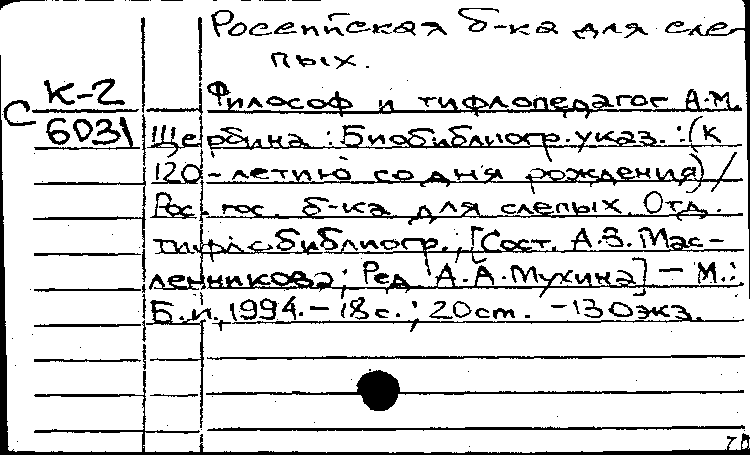 Российская б-ка для сле-
пых.
К-2
С
6031
Философ и тифлопедагог А.М.
Щербина : Библиогр. указ. : (К
120-летию со дня рождения) /
Рос. гос. б-ка для слепых. Отд.
тифлобиблиогр.; [Сост. А.В. Мас-
ленникова; Ред. А.А. Мухина] - М.:
Б.и., 1994. - 18 с.; 20 cm. - 130 экз.